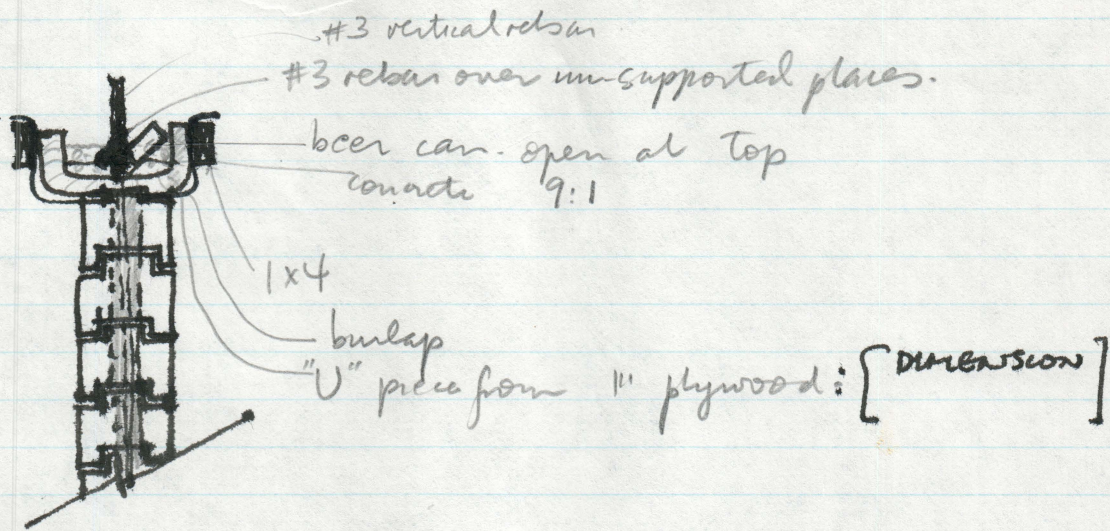 #3 vertical rebar
#3 rebar over un-supported places.
beer can. open at top
concrete 9:1
1x4
burlap
"U" piece from 1" plywood: [DIMENSION]